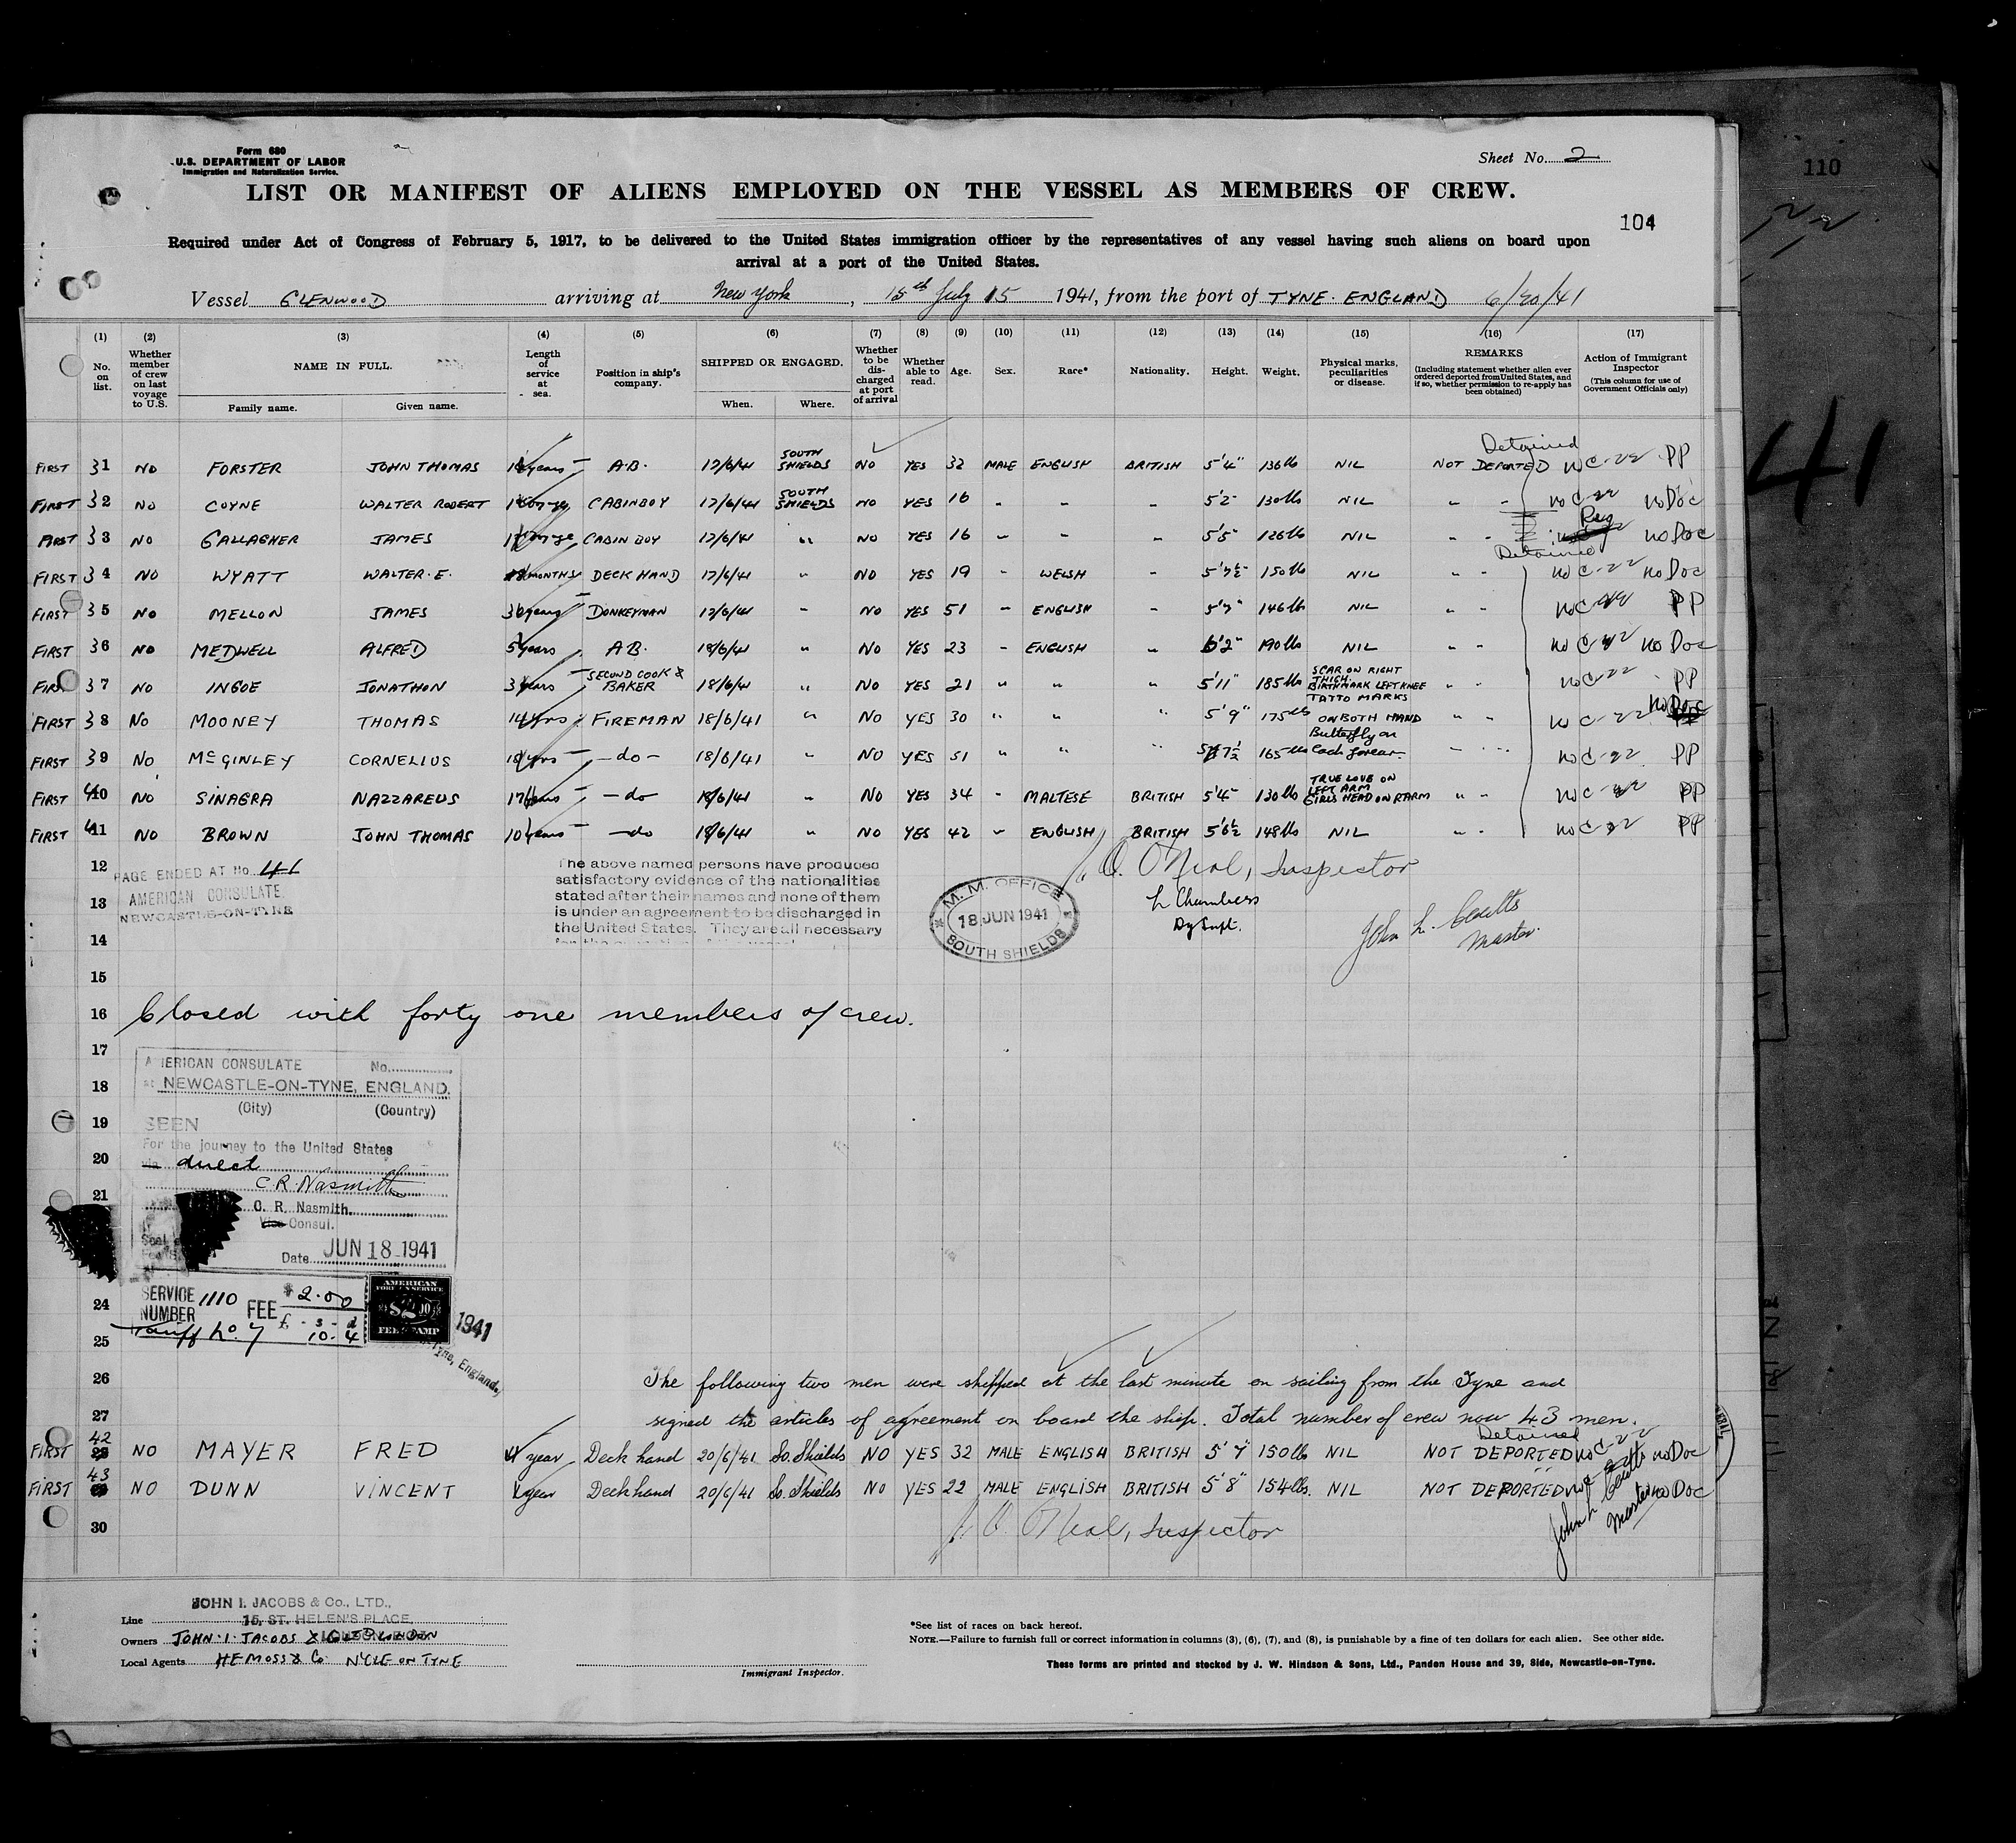 Form 680
U.S. DEPARTMENT OF LABOR
Immigration and Naturalization Service.
Sheet No. 2
110
LIST OR MANIFEST OF ALIENS EMPLOYED ON THE VESSEL AS MEMBERS OF CREW.
104
Required under Act of Congress of February 5, 1917, to be delivered to the United States immigration officer by the representatives of any vessel having such aliens on board upon
arrival at a port of the United States.
Vessel GLENWOOD arriving at New York, 15th July 15 1941, from the port of TYNE. ENGLAND 6/20/41
(1) (2) (3) (4) (5) (6) (7) (8) (9) (10) (11) (12) (13) (14) (15) (16) (17)
No. on list. Whether member of crew on last voyage to U.S. NAME IN FULL. Family name. Given name. Length of service at sea. Position in ship's company. SHIPPED OR ENGAGED. When. Where. Whether to be discharged at port of arrival Whether able to read. Age. Sex. Race* Nationality. Height. Weight. Physical marks, peculiarities or disease. REMARKS (Including statement whether alien ever ordered deported from United States, and if so, whether permission to re-apply has been obtained) Action of Immigrant Inspector (This column for use of Government Officials only)
41
Detained
FIRST 31 NO FORSTER JOHN THOMAS years A.B. 17/6/41 SOUTH SHIELDS NO YES 32 MALE ENGLISH BRITISH 5'4" 136lb NIL NOT DEPORTED no C-22 PP
FIRST 32 NO COYNE WALTER ROBERT CABINBOY 17/6/41 SOUTH SHIELDS NO YES 16 - - - 5'2" 130lbs NIL " " no C-22 no Doc
Reg
FIRST 33 NO GALLAGHER JAMES CABIN BOY 17/6/41 " NO YES 16 - - - 5'5" 126lb NIL " " no Doc
Detained
FIRST 34 NO WYATT WALTER.E. MONTHS DECK HAND 17/6/41 " NO YES 19 - WELSH - 5'7½ 150lb NIL " " no C-22 no Doc
FIRST 35 NO MELLON JAMES years DONKEYMAN 17/6/41 - NO YES 51 - ENGLISH - 5'7" 146lb NIL " " no C-22 PP
FIRST 36 NO MEDWELL ALFRED 5 years A.B. 18/6/41 " NO YES 23 - ENGLISH " 6'2" 190lbs NIL " " no C-22 no Doc
FIRST 37 NO INGOE JONATHON 3 years SECOND COOK & BAKER 18/6/41 " NO YES 21 " " " 5'11" 185lbs SCAR ON RIGHT THIGH. BIRTHMARK LEFT KNEE " " no C-22 PP
FIRST 38 NO MOONEY THOMAS 14 yrs FIREMAN 18/6/41 " NO YES 30 " " " 5'9" 175lbs TATTO MARKS ON BOTH HAND " " no C-22 no Doc
FIRST 39 NO McGINLEY CORNELIUS yrs -do- 18/6/41 " NO YES 51 " " " 7½ 165lbs Butterfly on each forear " " no C-22 PP
FIRST 40 NO SINAGRA NAZZAREUS 17 years -do 18/6/41 " NO YES 34 - MALTESE BRITISH 5'4" 130lbs TRUE LOVE ON LEFT ARM GIRLS HEAD ON R ARM " " no C-22 PP
FIRST 41 NO BROWN JOHN THOMAS 10 years -do 18/6/41 " NO YES 42 - ENGLISH BRITISH 5'6½ 148lbs NIL " " no C-22 PP
12
PAGE ENDED AT No. 41
AMERICAN CONSULATE.
NEWCASTLE-ON-TYNE
The above named persons have produced
satisfactory evidence of the nationalities
stated after their names and none of them
is under an agreement to be discharged in
the United States. They are all necessary
M.M. OFFICE
18 JUN 1941
SOUTH SHIELDS
O'Neal, Inspector
L Chambers
Dy Supt.
John L. Coutts
Master.
13
14
15
16 Closed with forty one members of crew.
17
AMERICAN CONSULATE No.
18 at NEWCASTLE-ON-TYNE, ENGLAND.
(City) (Country)
19 SEEN
For the journey to the United States
20 via direct
C.R. Nasmith
21 C. R. Nasmith.
Vice Consul.
Date JUN 18 1941
24 SERVICE NUMBER 1110 FEE $2.00
£ - s - d
Tariff No. 7 10-4
AMERICAN FOREIGN SERVICE
$2.00
FEE STAMP
1941
Tyne, England.
25
26 The following two men were shipped at the last minute on sailing from the Tyne and
27 signed the articles of agreement on board the ship. Total number of crew now 43 men.
Detained
FIRST 42 NO MAYER FRED year Deck hand 20/6/41 So. Shields NO YES 32 MALE ENGLISH BRITISH 5'7" 150lb NIL NOT DEPORTED no C-22 no Doc
FIRST 43 NO DUNN VINCENT year Deck hand 20/6/41 So. Shields NO YES 22 MALE ENGLISH BRITISH 5'8" 154lbs. NIL NOT DEPORTED no Doc
John L Coutts
Master
30 O'Neal, Inspector
JOHN I. JACOBS & Co., LTD.,
Line 15, ST. HELEN'S PLACE,
Owners JOHN.I.JACOBS & Co LTD LONDON
Local Agents HE MOSS & Co. N'CLE ON TYNE
Immigrant Inspector.
*See list of races on back hereof.
NOTE.—Failure to furnish full or correct information in columns (3), (6), (7), and (8), is punishable by a fine of ten dollars for each alien. See other side.
These forms are printed and stocked by J. W. Hindson & Sons, Ltd., Pandon House and 39, Side, Newcastle-on-Tyne.